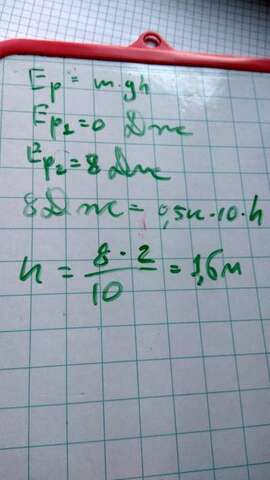 Eр = m·gh
Eр₁=0 Дж
Eр₂=8 Дж
8Дж = 0,5к·10·h
h = 8·2/10 = 1,6м